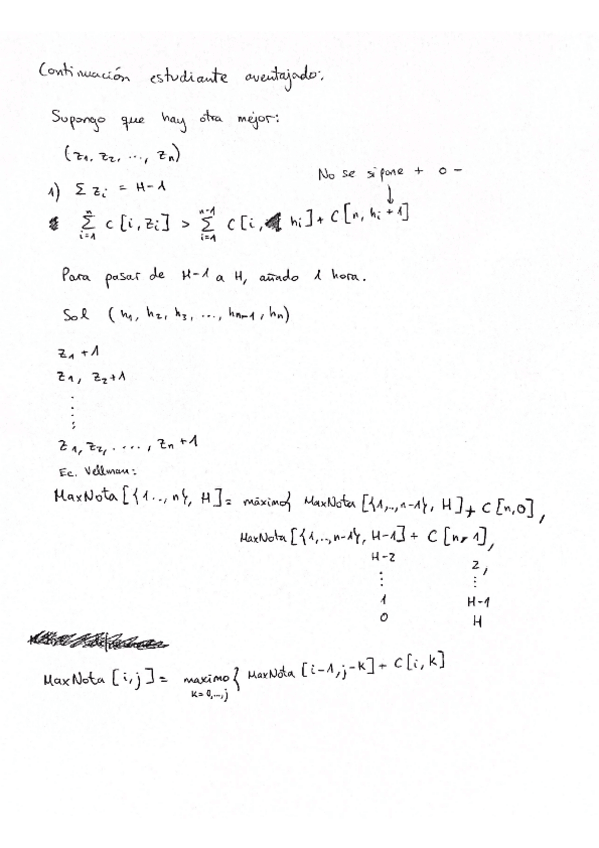 Continuación estudiante aventajado:
Supongo que hay otra mejor:
(z1, z2, ..., zn)
No se si pone + o -
1) Σ zi = H-1
Σ i=1 n C[i, zi] > Σ i=1 n-1 C[i, hi] + C[n, hi + 1]
Para pasar de H-1 a H, añado 1 hora.
Sol (h1, h2, h3, ..., hn-1, hn)
z1 +1
z1, z2+1
⋮
z1, z2, ...., zn +1
Ec. Vellman:
MaxNota[{1..., n}, H] = máximo{ MaxNota[{1,..,n-1}, H] + C[n,0],
MaxNota[{1,...,n-1}, H-1] + C[n, 1],
H-2 2,
⋮ ⋮
1 H-1
0 H
MaxNota[i,j] = maximo k=0,...,j { MaxNota[i-1, j-k] + C[i, k]